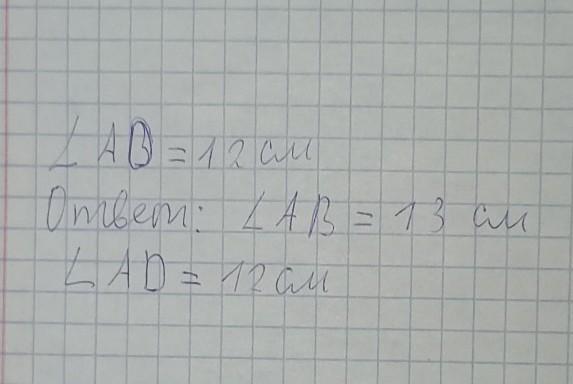 ∠AD = 12 см
Ответ: ∠AB = 13 см
∠AD = 12 см